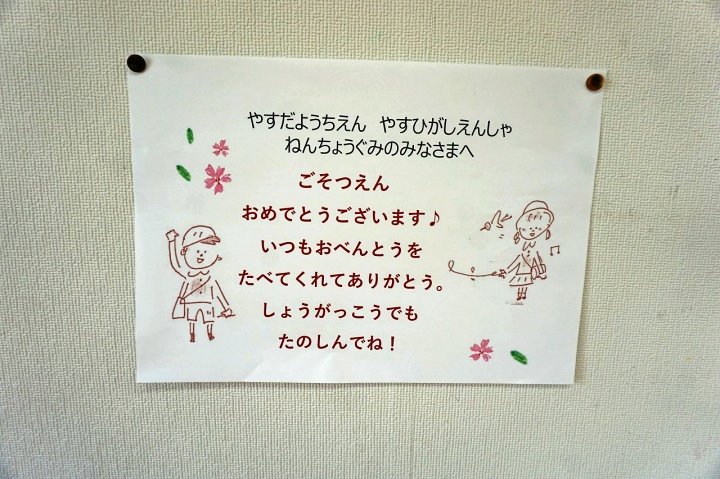 やすだようちえん　やすひがしえんしゃ
ねんちょうぐみのみなさまへ
ごそつえん
おめでとうございます♪
いつもおべんとうを
たべてくれてありがとう。
しょうがっこうでも
たのしんでね！